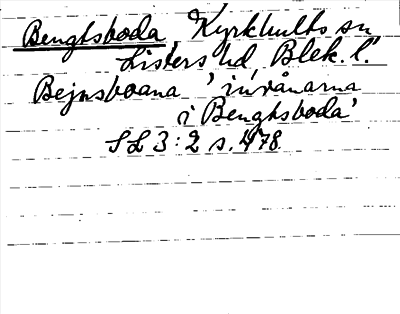 Bengtsboda, Kyrkhults sn
Listers hd Blek. l.
Bejnsboana 'invånarna
i Bengtsboda'
SL 3:2 s. 478